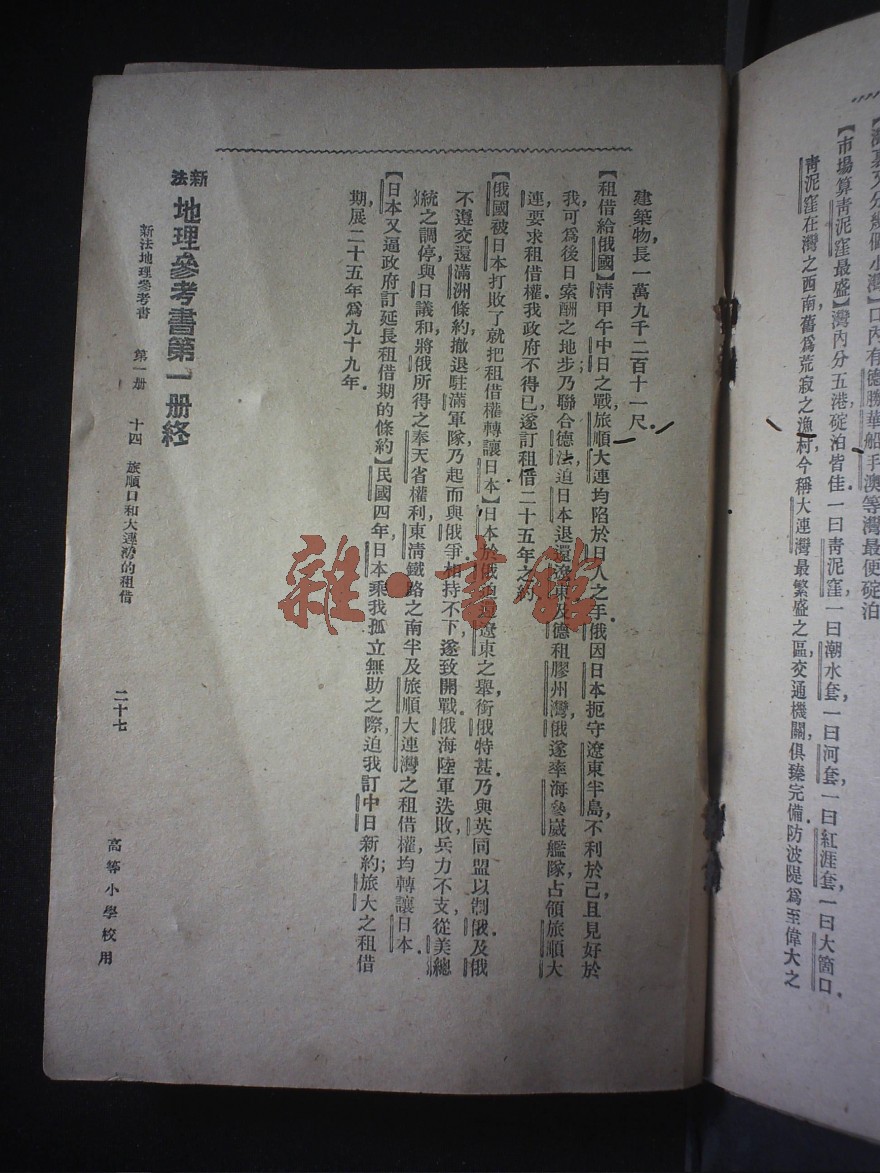 口內有德勝華船手澳等灣最便碇泊
【市場算靑泥窪最盛】灣內分五港碇泊皆佳一曰靑泥窪一曰潮水套一曰河套一曰紅涯套一曰大箇口
靑泥窪在灣之西南舊爲荒寂之漁村今稱大連灣最繁盛之區交通機關俱臻完備防波隄爲至偉大之
建築物長一萬九千二百十一尺
【租借給俄國】淸甲午中日之戰旅順大連均陷於日人之手俄因日本扼守遼東半島不利於己且見好於
我可爲後日索酬之地步乃聯合德法迫日本退還遼東及德租膠州灣俄遂率海參崴艦隊占領旅順大
連要求租借權我政府不得已遂訂租借二十五年之約
【俄國被日本打敗了就把租借權轉讓日本】日本於俄迫還遼東之舉銜俄特甚乃與英同盟以制俄及俄
不遵交還滿洲條約撤退駐滿軍隊乃起而與俄爭相持不下遂致開戰俄海陸軍迭敗兵力不支從美總
統之調停與日議和將俄所得之奉天省權利東淸鐵路之南半及旅順大連灣之租借權均轉讓日本
【日本又逼政府訂延長租借期的條約】民國四年日本乘我孤立無助之際迫我訂中日新約旅大之租借
期展二十五年爲九十九年
新法地理參考書第一册終
新法地理參考書 第一册 十四 旅順口和大連灣的租借 二十七 高等小學校用
雜·書館